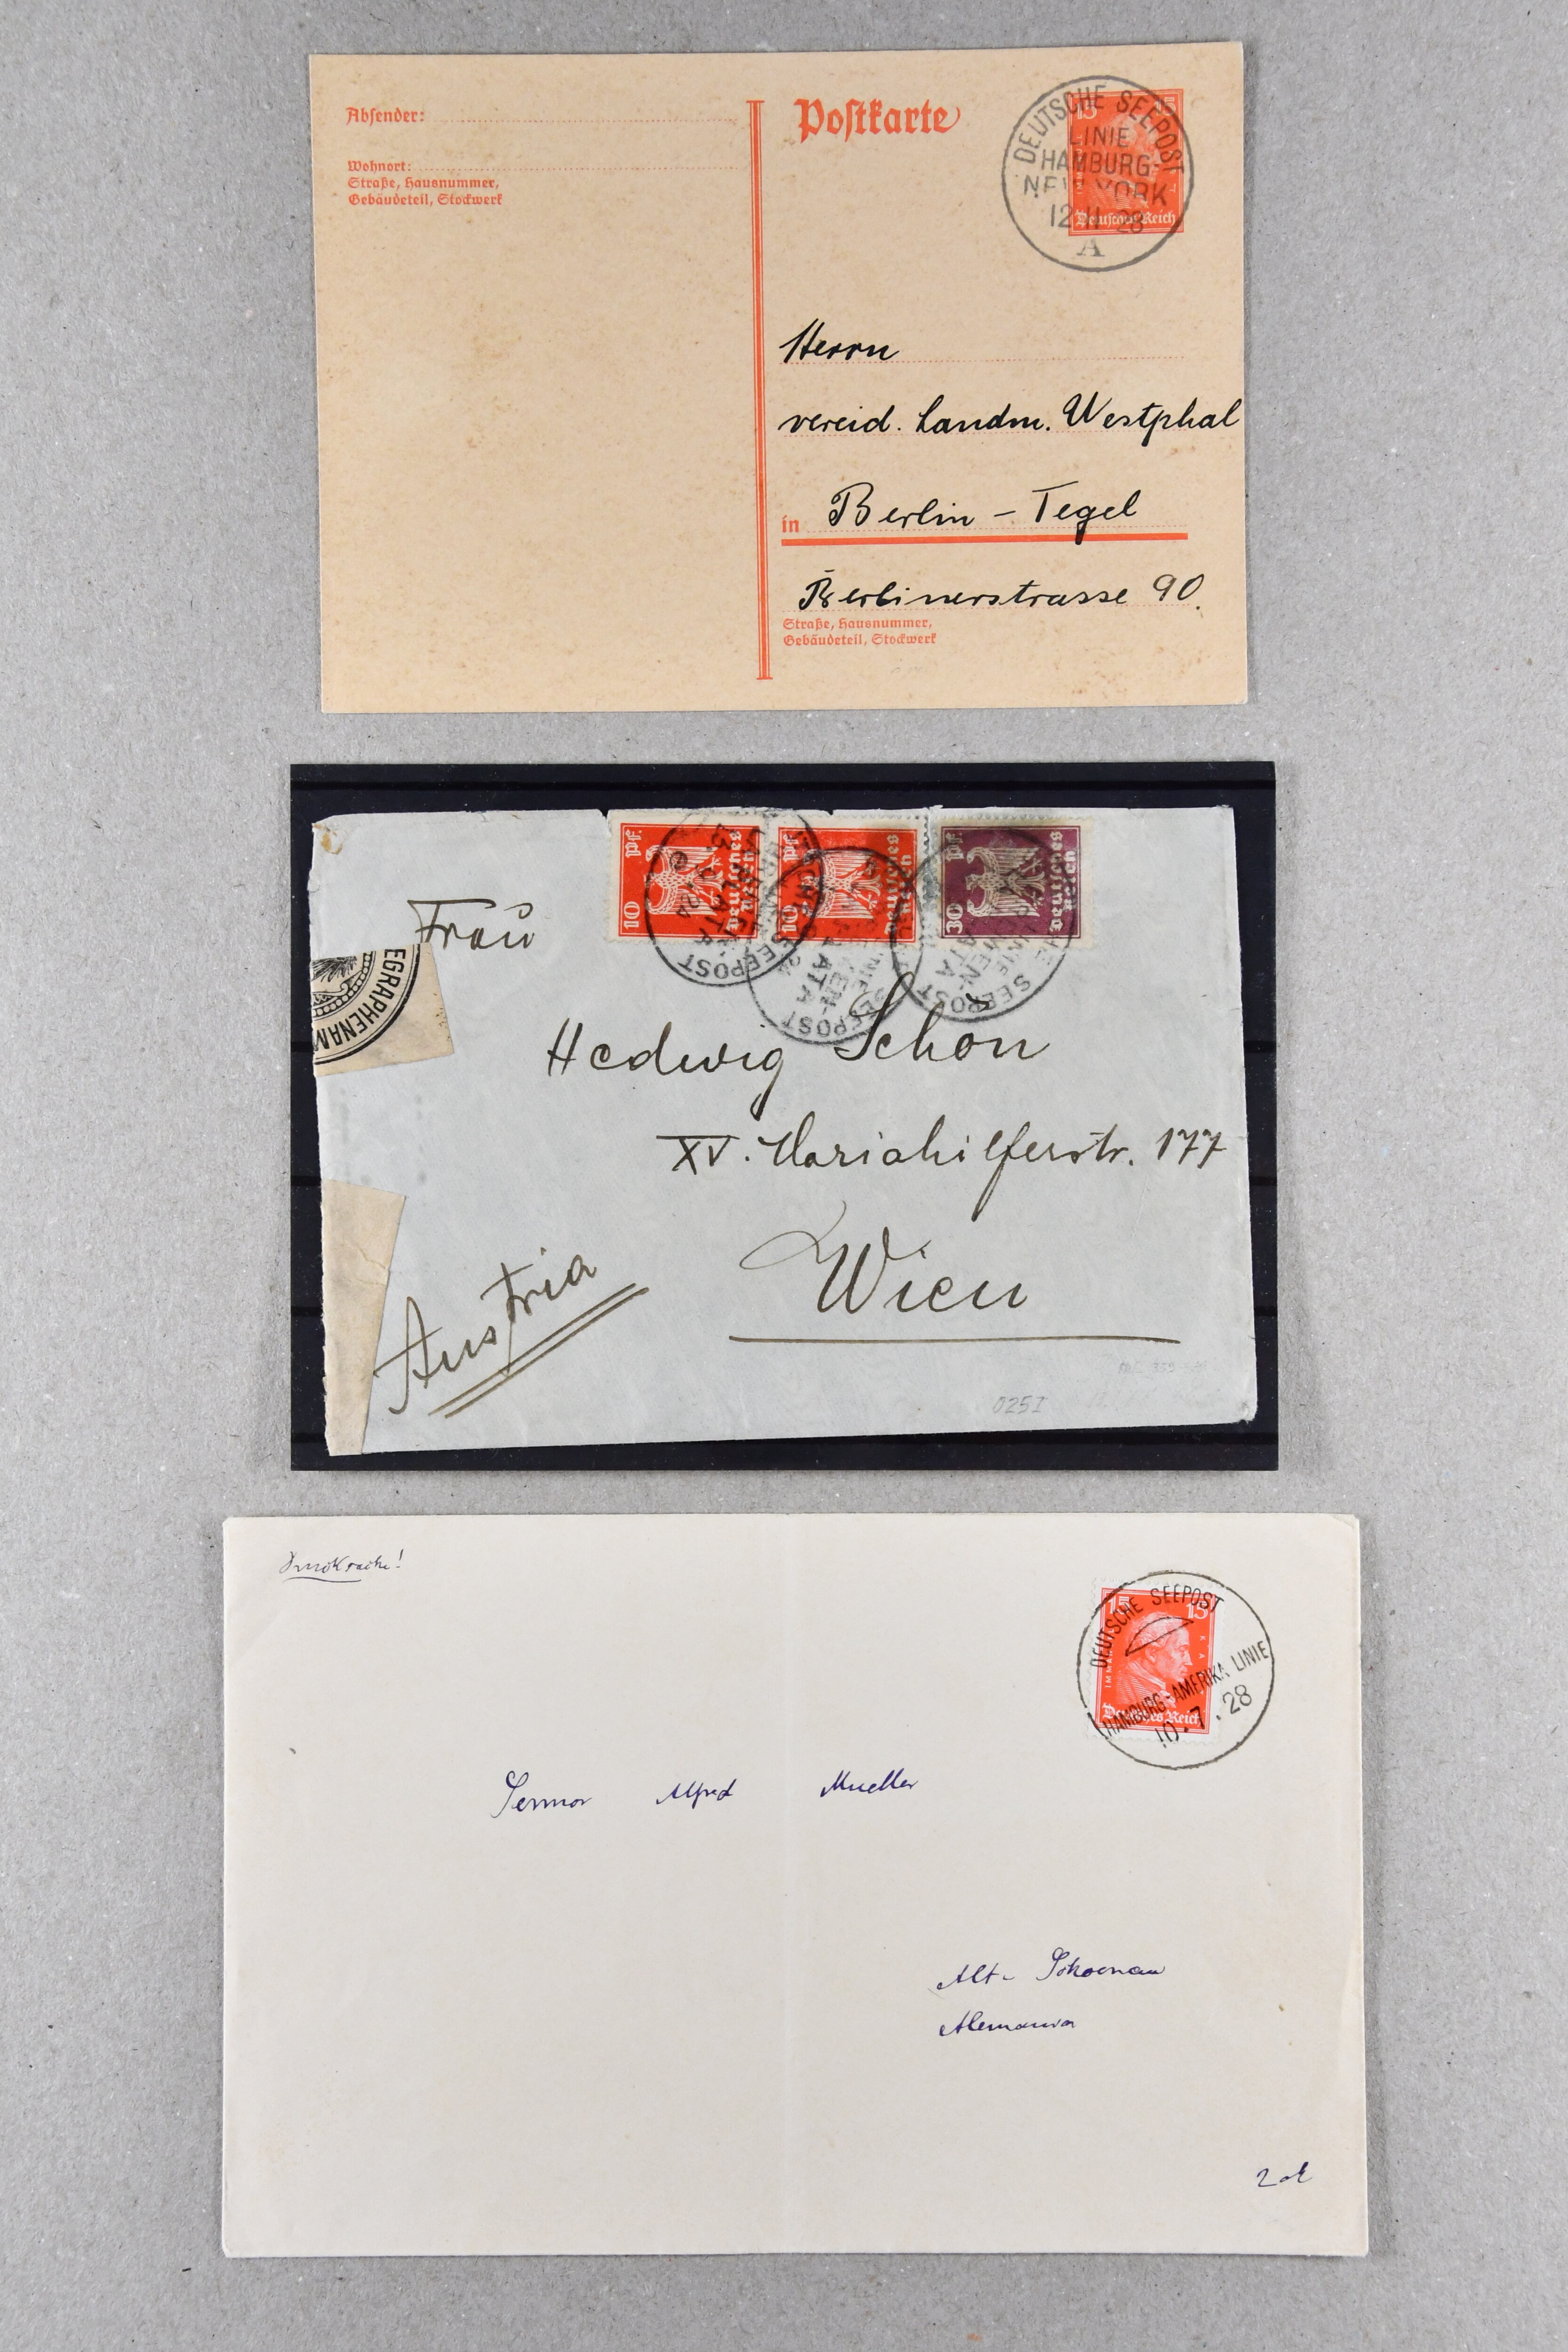 Absender:
Wohnort:
Straße, Hausnummer,
Gebäudeteil, Stockwerk
Postkarte
15 15
Deutsches Reich
DEUTSCHE SEEPOST
LINIE
HAMBURG-
NEW YORK
12 11 28
A
Herrn
vereid. Landm. Westphal
in Berlin - Tegel
Berlinerstrasse 90.
Straße, Hausnummer,
Gebäudeteil, Stockwerk
10 Pf. Deutsches Reich
10 Pf. Deutsches Reich
30 Pf. Deutsches Reich
SEEPOST
SEEPOST
SEEPOST
EGRAPHENAM
Frau
Hedwig Schön
XV. Mariahilferstr. 177
Wien
Austria
025I
Drucksache!
15 15
Deutsches Reich
DEUTSCHE SEEPOST
HAMBURG-AMERIKA LINIE
10.7.28
Sennor Alfred Mueller
Alt- Schoenau
Alemania